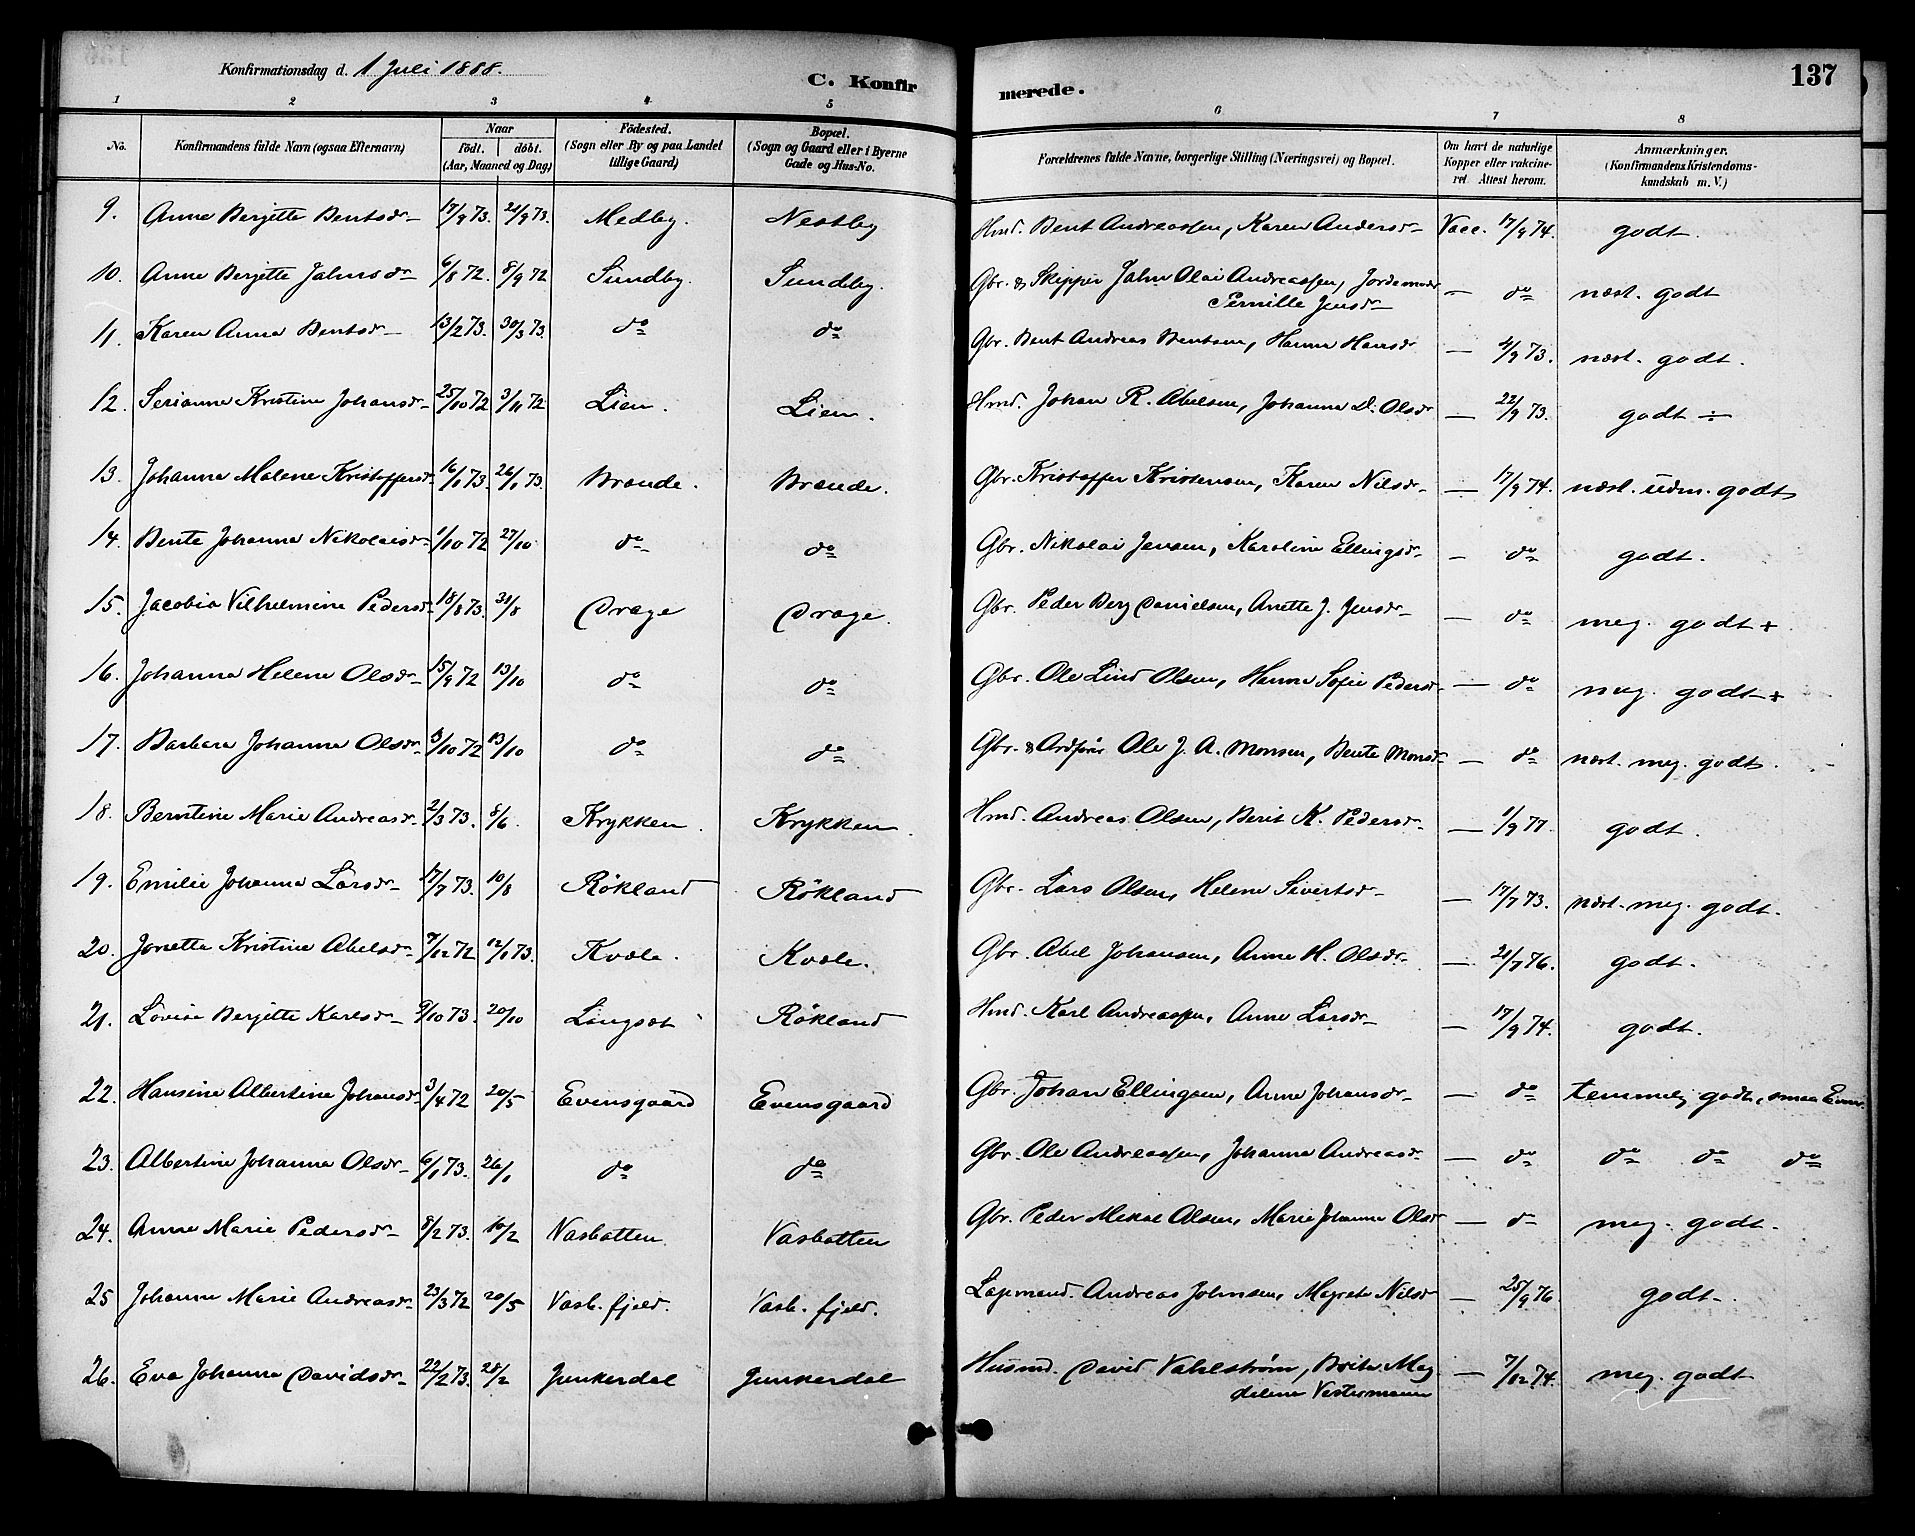 Konfirmationsdag d. 1 Juli 1888.
C. Konfirmerede.
137
1 2 3 4 5 6 7 8
No. Konfirmandens fulde Navn (ogsaa Efternavn) Naar födt. döbt. (Aar, Maaned og Dag) Födested. (Sogn eller By og paa Landet tillige Gaard) Bopæl. (Sogn og Gaard eller i Byerne Gade og Hus-No. Forældrenes fulde Navne, borgerlige Stilling (Næringsvei) og Bopæl. Om havt de naturlige Kopper eller vakcineret. Attest herom. Anmærkninger. (Konfirmandens Kristendomskundskab m. V.)
9. Anne Berjette Bentsdr 17/9 73. 21/9 73. Medby. Nestby Hmd. Bent Andreassen, Karen Andersdr Vacc. 17/9 74. godt.
10. Anne Berjette Jahnsdr 6/8 72. 8/9 72 Sundby. Sundby. Gbr. & Skipper Jahn Olai Andreassen, Jordemoder Pernille Jensdr — do næst. godt
11. Karen Anna Bentsdr 13/2 73. 30/3 73. do do Gbr. Bent Andreas Bentsen, Hanna Hansdr — 4/9 73. næst. godt.
12. Serianna Kristine Johansdr 25/10 72 3/11 72 Lien. Lien. Hmd. Johan R. Abelsen, Johanna D. Olsdr — 22/9 73. godt ÷
13. Johanna Malene Kristoffersdr 16/1 73. 26/1 73. Brænde. Brænde. Gbr. Kristoffer Kristensen, Karen Nilsdr — 17/9 74. næst. udm. godt
14. Bente Johanna Nikolaisdr 1/10 72 27/10 do do Gbr. Nikolai Jensen, Karoline Ellingsdr — do godt.
15. Jacobia Vilhelmine Pedersdr 18/8 73. 31/8 Drage Drage. Gbr. Peder Berg Danielsen, Anette J. Jensdr — do meg. godt +
16. Johanna Helene Olsdr 15/9 72 13/10 do do Gbr. Ole Lind Olsen, Hanna Sofie Pedersdr — do meg. godt +
17. Barbara Johanna Olsdr 3/10 72 13/10 do do Gbr. & Ordfører Ole J. A. Monsen, Bente Monsdr — do næst. meg. godt.
18. Berntine Marie Andreasdr 2/3 73. 8/6. Krykken. Krykken. Hmd. Andreas Olsen, Berit K. Pedersdr — 1/9 77. godt.
19. Emilie Johanna Larsdr 17/7 73. 10/8 Rökland Rökland Gbr. Lars Olsen, Helene Sivertsdr — 17/7 73. næst. meg. godt.
20. Jonette Kristine Abelsdr 7/12 72 12/1 73. Kvæle. Kvæle. Gbr. Abel Johansen, Anne H. Olsdr — 21/7 76. godt.
21. Lovise Berjette Karlsdr 9/10 73. 20/10 Lingsæt Rökland Hmd. Karl Andreassen, Anne Larsdr — 17/9 74. godt.
22. Hansine Albertine Johansdr 3/4 72 20/5 Evensgaard Evensgaard Gbr. Johan Ellingsen, Anne Johansdr — do temmelig godt, smaa Evner.
23. Albertine Johanna Olsdr 6/1 73. 26/1 do do Gbr. Ole Andreassen, Johanna Andreasdr — do do do do
24. Anne Marie Pedersdr 8/2 73. 10/2 Vasbotten. Vasbotten Gbr. Peder Mikal Olsen, Marie Johanna Olsdr — do meg. godt.
25 Johanna Marie Andreasdr 23/3 72 20/5 Vasb. fjeld. Vasb. fjeld. Lapmand. Andreas Johnsen, Magrete Nilsdr — 25/9 76. godt.
26. Eva Johanna Davidsdr 22/2 73. 28/2 Junkerdal Junkerdal Husmd. David Vahlström, Brita Magdalena Vestermann — 7/12 74. meg. godt